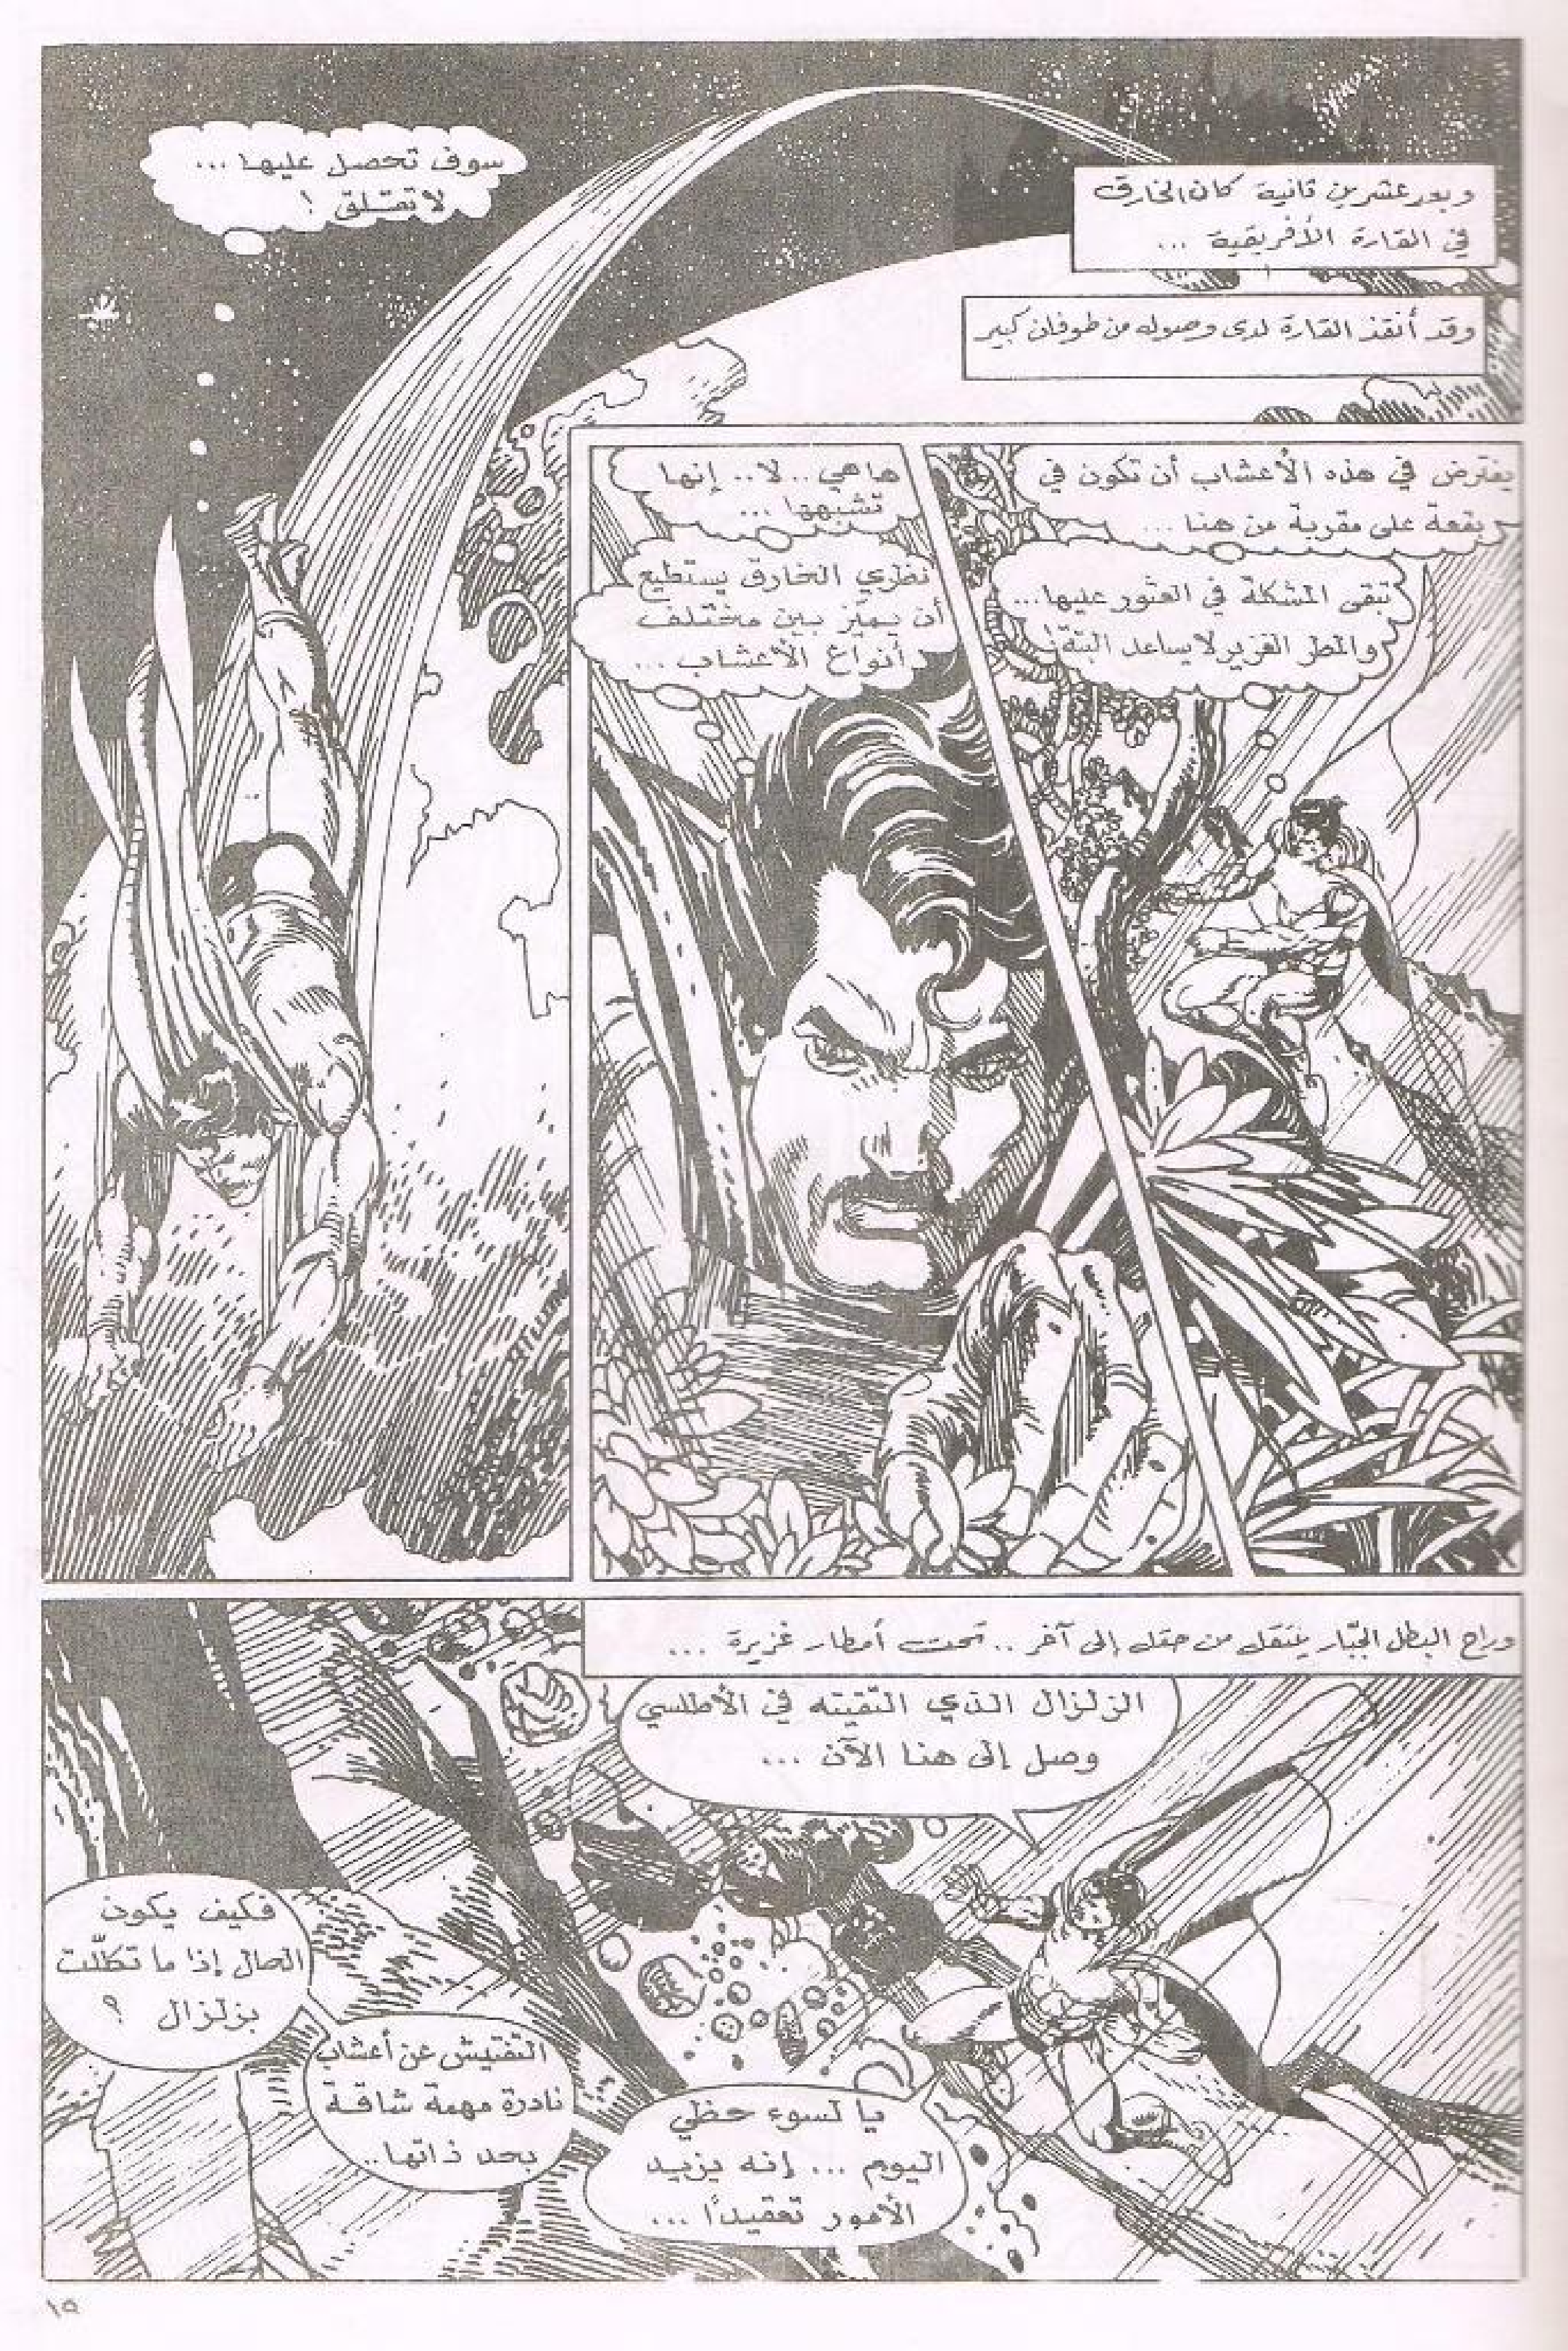 وبعد عشرين ثانية كان الخارق
في القارة الأفريقية ...
وقد أنقذ القارة لدى وصوله من طوفان كبير
سوف تحصل عليها ...
لا تقلق !
يفترض في هذه الأعشاب أن تكون في
بقعة على مقربة من هنا ...
تبقى المشكلة في العثور عليها...
والمطر الغزير لا يساعد البتة!
ها هي .. لا .. إنها
تشبهها ...
نظري الخارق يستطيع
أن يميّز بين مختلف
أنواع الأعشاب ...
وراح البطل الجبّار يتنقل من حقل إلى آخر .. تحت أمطار غزيرة ...
الزلزال الذي التقيته في الأطلسي
وصل إلى هنا الآن ...
يا لسوء حظي
اليوم ... إنه يزيد
الأمور تعقيدًا ...
التفتيش عن أعشاب
نادرة مهمة شاقة
بحد ذاتها ..
فكيف يكون
الحال إذا ما تكلّلت
بزلزال ؟
١٩